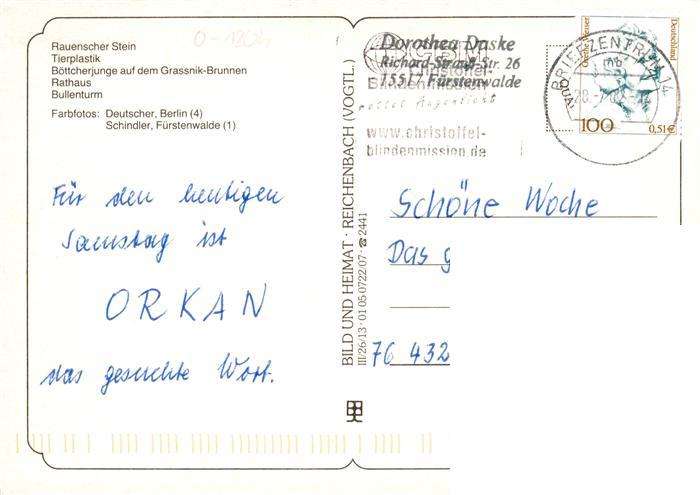 Rauenscher Stein
Tierplastik
Böttcherjunge auf dem Grassnik-Brunnen
Rathaus
Bullenturm
Farbfotos: Deutscher, Berlin (4)
Schindler, Fürstenwalde (1)
Für den heutigen
Samstag ist
ORKAN
das gesuchte Wort.
BILD UND HEIMAT · REICHENBACH (VOGTL.)
III/26/13 · 01 05 0722/07 · ☎ 2441
Dorothea Daske
Richard-Strauß-Str. 26
15517 Fürstenwalde
Christoffel-
Blindenmission
rettet Augenlicht
www.christoffel-
blindenmission.de
BRIEFZENTRUM
Deutschland
100
0,51€
Schöne Woche
Das g
76 432